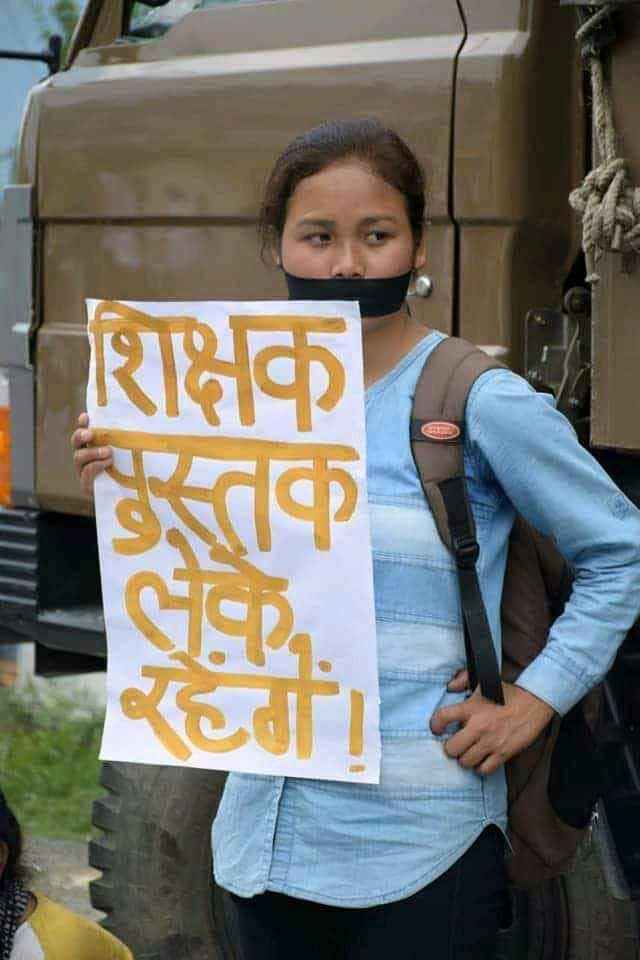 शिक्षक
पुस्तक
लेके
रहेंगें!